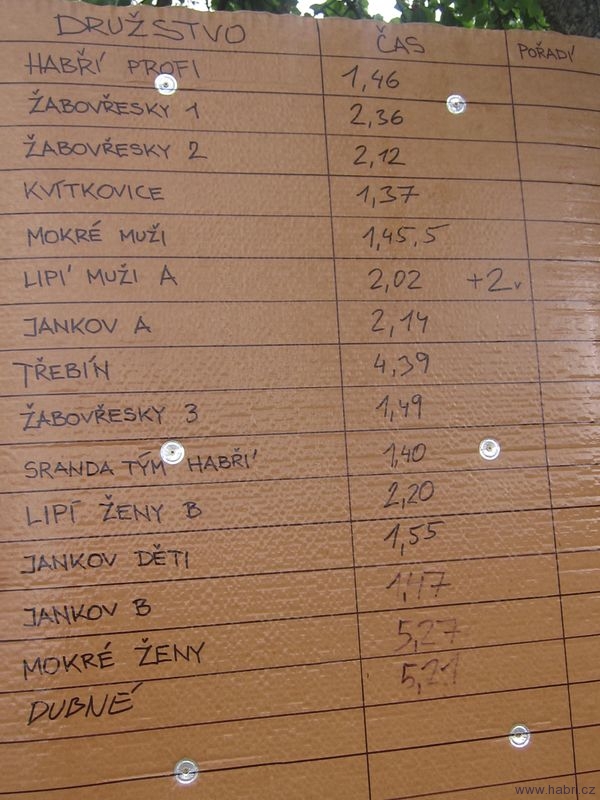 DRUŽSTVO ČAS POŘADÍ
HABŘÍ PROFI 1,46
ŽABOVŘESKY 1 2,36
ŽABOVŘESKY 2 2,12
KVÍTKOVICE 1,37
MOKRÉ MUŽI 1,45,5
LIPÍ MUŽI A 2,02 +2v
JANKOV A 2,14
TŘEBÍN 4,39
ŽABOVŘESKY 3 1,49
SRANDA TÝM HABŘÍ 1,40
LIPÍ ŽENY B 2,20
JANKOV DĚTI 1,55
JANKOV B 1,47
MOKRÉ ŽENY 5,27
DUBNÉ 5,21
www.habri.cz